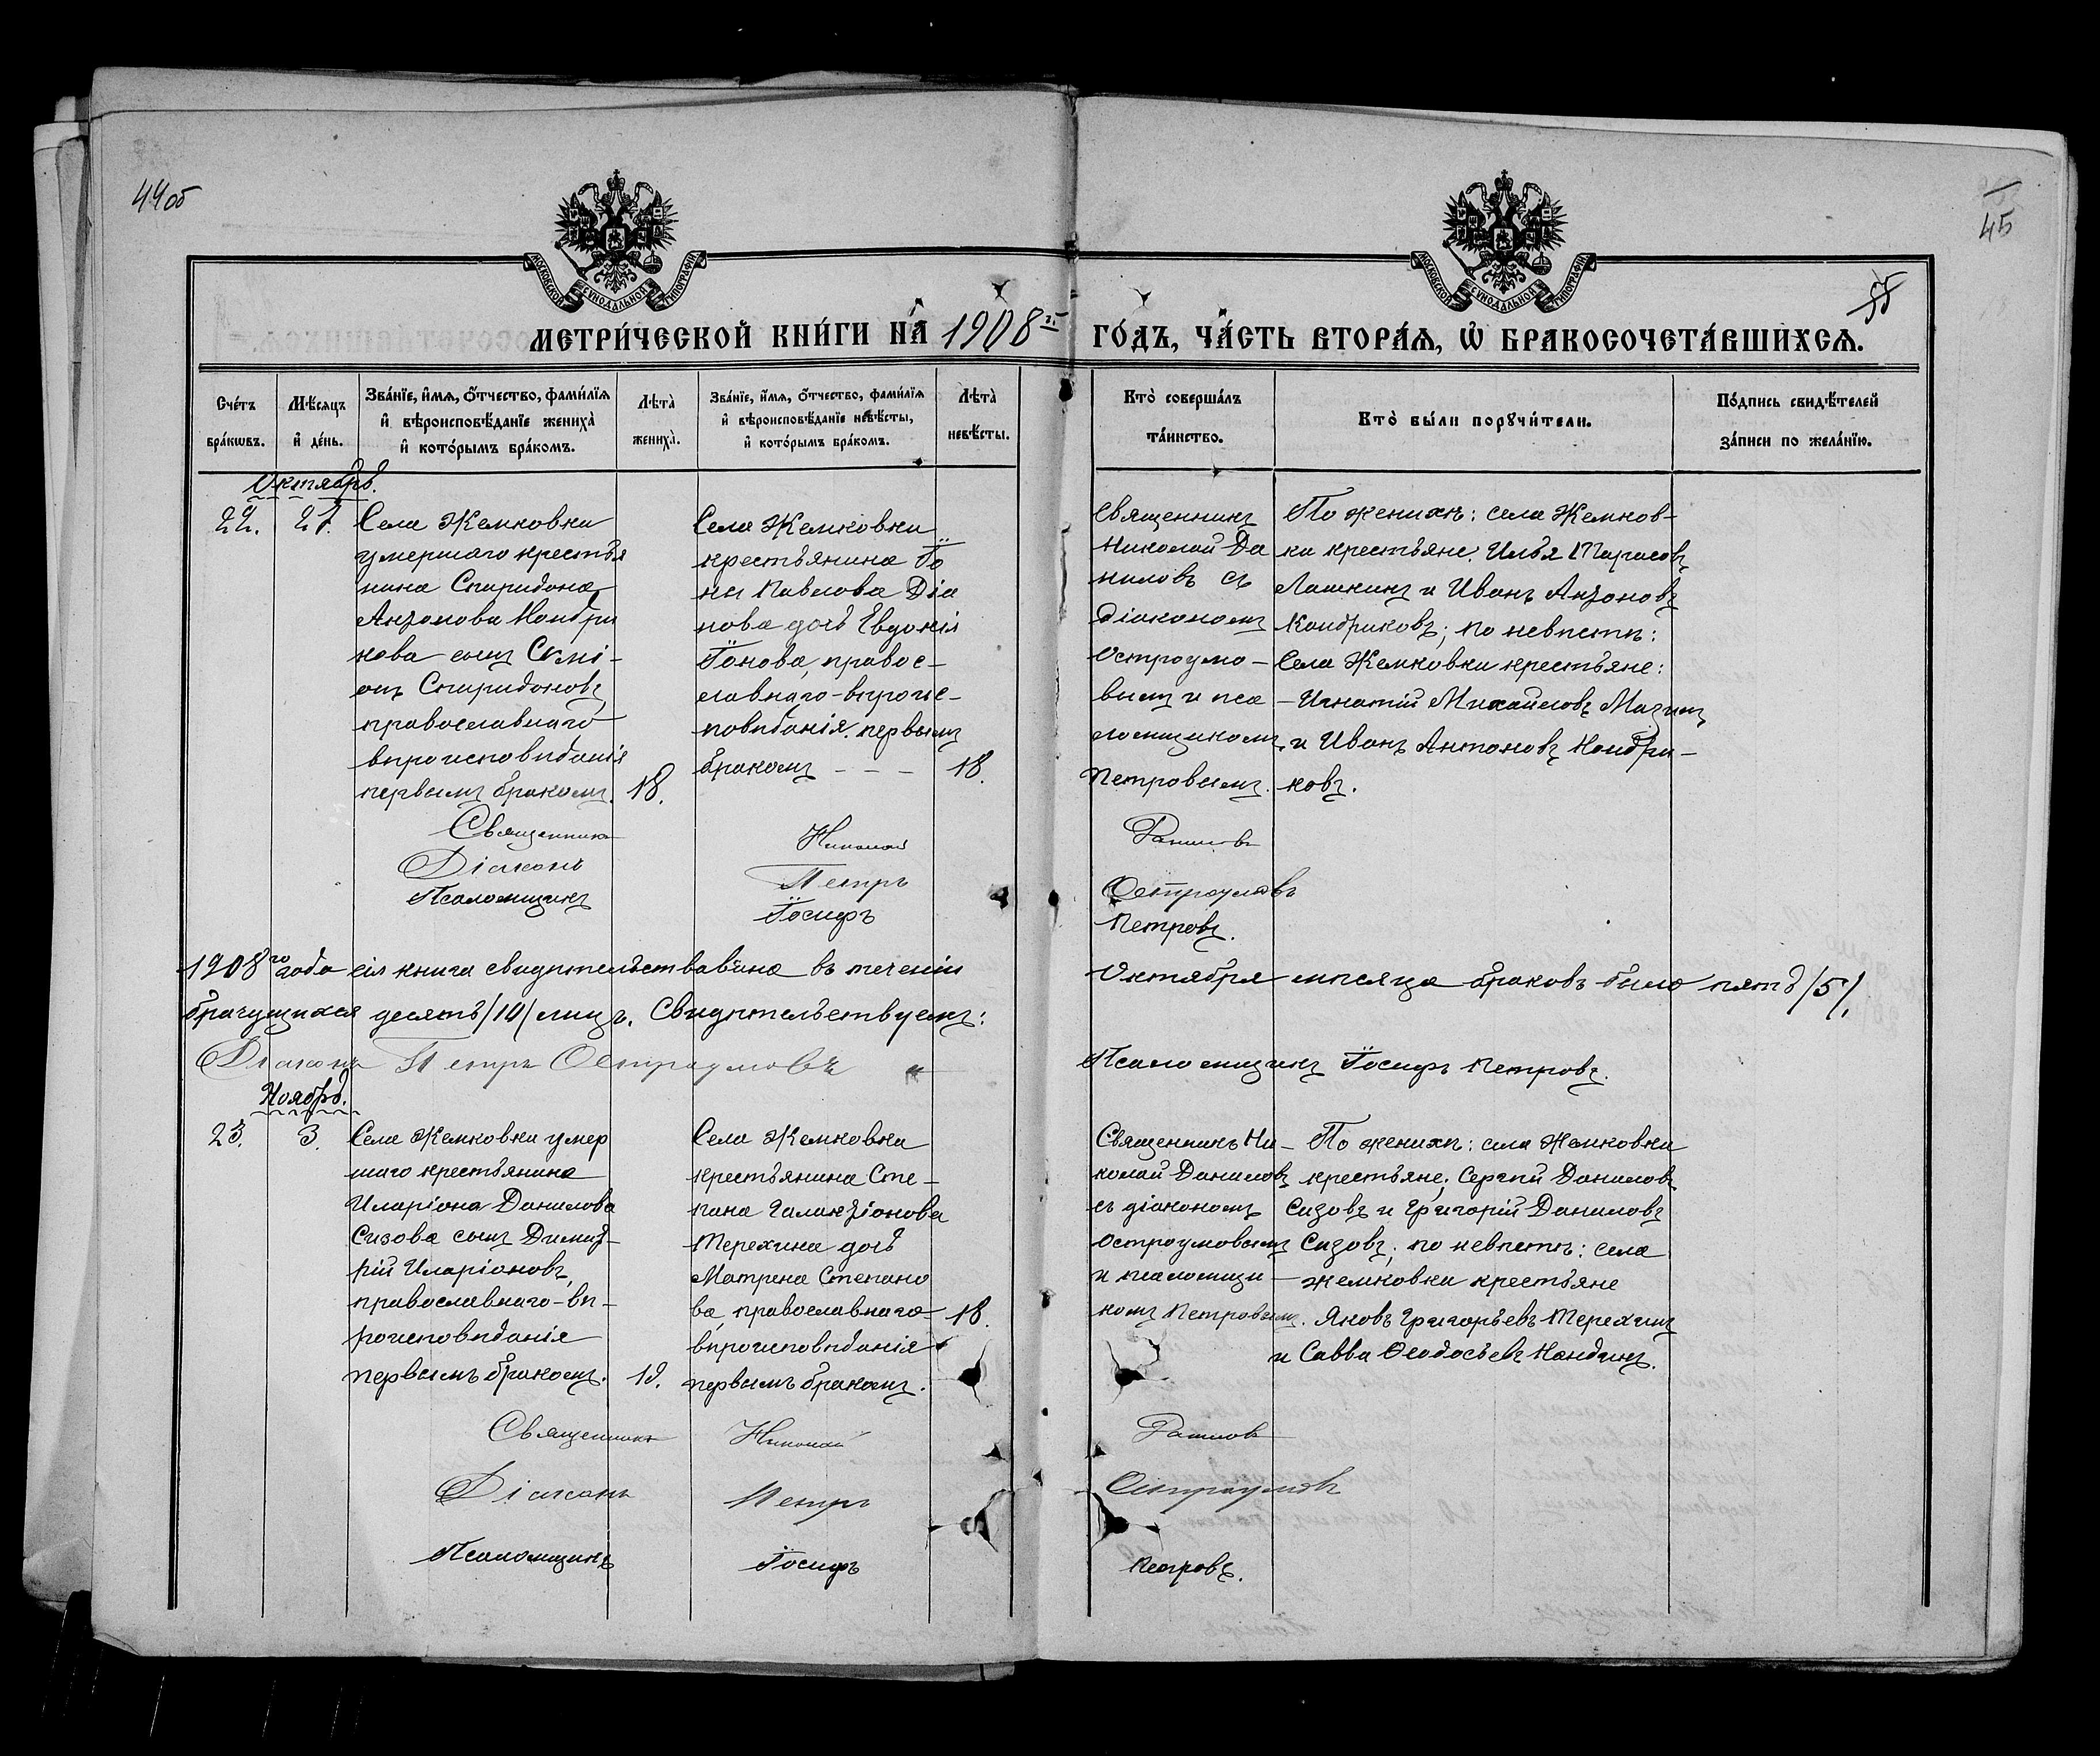 44об
45
55
МОСКОВСКОЙ СѴНОДАЛЬНОЙ ТИПОГРАФІИ
МОСКОВСКОЙ СѴНОДАЛЬНОЙ ТИПОГРАФІИ
МЕТРИ́ЧЕСКОЙ КНИ́ГИ НА̀ 1908й ГО́ДЪ, ЧА́СТЬ ВТОРА́Ѧ, Ѡ БРАКОСОЧЕТА́ВШИХСѦ.
Сче́тъ бра́кѡвъ.
Мѣ́сѧцъ и҆ де́нь.
Зва́нїе, и҆́мѧ, ѻ҆́тчество, фами́лїѧ и҆ вѣроисповѣ́данїе жениха̀ и҆ кото́рымъ бра́комъ.
Лѣ́та̀ жениха̀.
Зва́нїе, и҆́мѧ, ѻ҆́тчество, фами́лїѧ и҆ вѣроисповѣ́данїе невѣ́сты, и҆ кото́рымъ бра́комъ.
Лѣ́та̀ невѣ́сты.
Кто̀ соверша́лъ та́инство.
Кто̀ бы́ли порꙋчи́тели.
По́дпись свидѣ́телей за́писи по жела́нїю.
Октябрь.
22.
27.
Села Жемковки
умершаго крестья
нина Спиридона
Антонова Кондри
кова сынъ Симі-
онъ Спиридоновъ
православнаго
вѣроисповѣданія
первымъ бракомъ.
18.
Села Жемковки
крестьянина Іо
ны Павлова Діа
нова дочь Евдокія
Іонова, правос-
лавнаго-вѣроис-
повѣданія. первымъ
бракомъ - - -
18.
Священникъ
Николай Да
ниловъ съ
діакономъ
Остроумо-
вымъ и пса
ломщикомъ
Петровымъ.
По женихѣ: села Жемков-
ки крестьяне: Илья Тарасовъ
Лашкинъ и Иванъ Антоновъ
Кондриковъ; по невѣстѣ:
Села Жемковки крестьяне:
Игнатій Михайловъ Мазинъ
и Иванъ Антоновъ Кондри-
ковъ.
Священникъ Николай Даниловъ
Діаконъ Петръ Остроумовъ
Псаломщикъ Іосифъ Петровъ.
1908го года сія книга свидѣтельствована въ теченіи Октября мѣсяца браковъ было пять /5/.
брачущихся десять /10/ лицъ. Свидѣтельствуемъ:
Діаконъ Петръ Остроумовъ Псаломщикъ Іосифъ Петровъ.
Ноябрь.
23.
3.
Села Жемковки умер
шаго крестьянина
Иларіона Данилова
Сизова сынъ Димит-
рій Иларіоновъ,
православнаго-вѣ-
роисповѣданія
первымъ бракомъ.
Села Жемковки
крестьянина Сте-
пана Галактіонова
Терехина дочь
Матрена Степано
ва, православнаго
вѣроисповѣданія
первымъ бракомъ.
18.
Священникъ Ни-
колай Даниловъ
съ діакономъ
Остроумовымъ
и псаломщи-
комъ Петровымъ.
По женихѣ: села Жемковки
крестьяне; Сергѣй Даниловъ
Сизовъ и Григорій Даниловъ
Сизовъ; по невѣстѣ: села
Жемковки крестьяне
Яковъ Григорьевъ Терехинъ
и Савва Ѳеодосьевъ Кандинъ.
Священникъ Николай Даниловъ
Діаконъ Петръ Остроумовъ
Псаломщикъ Іосифъ Петровъ.